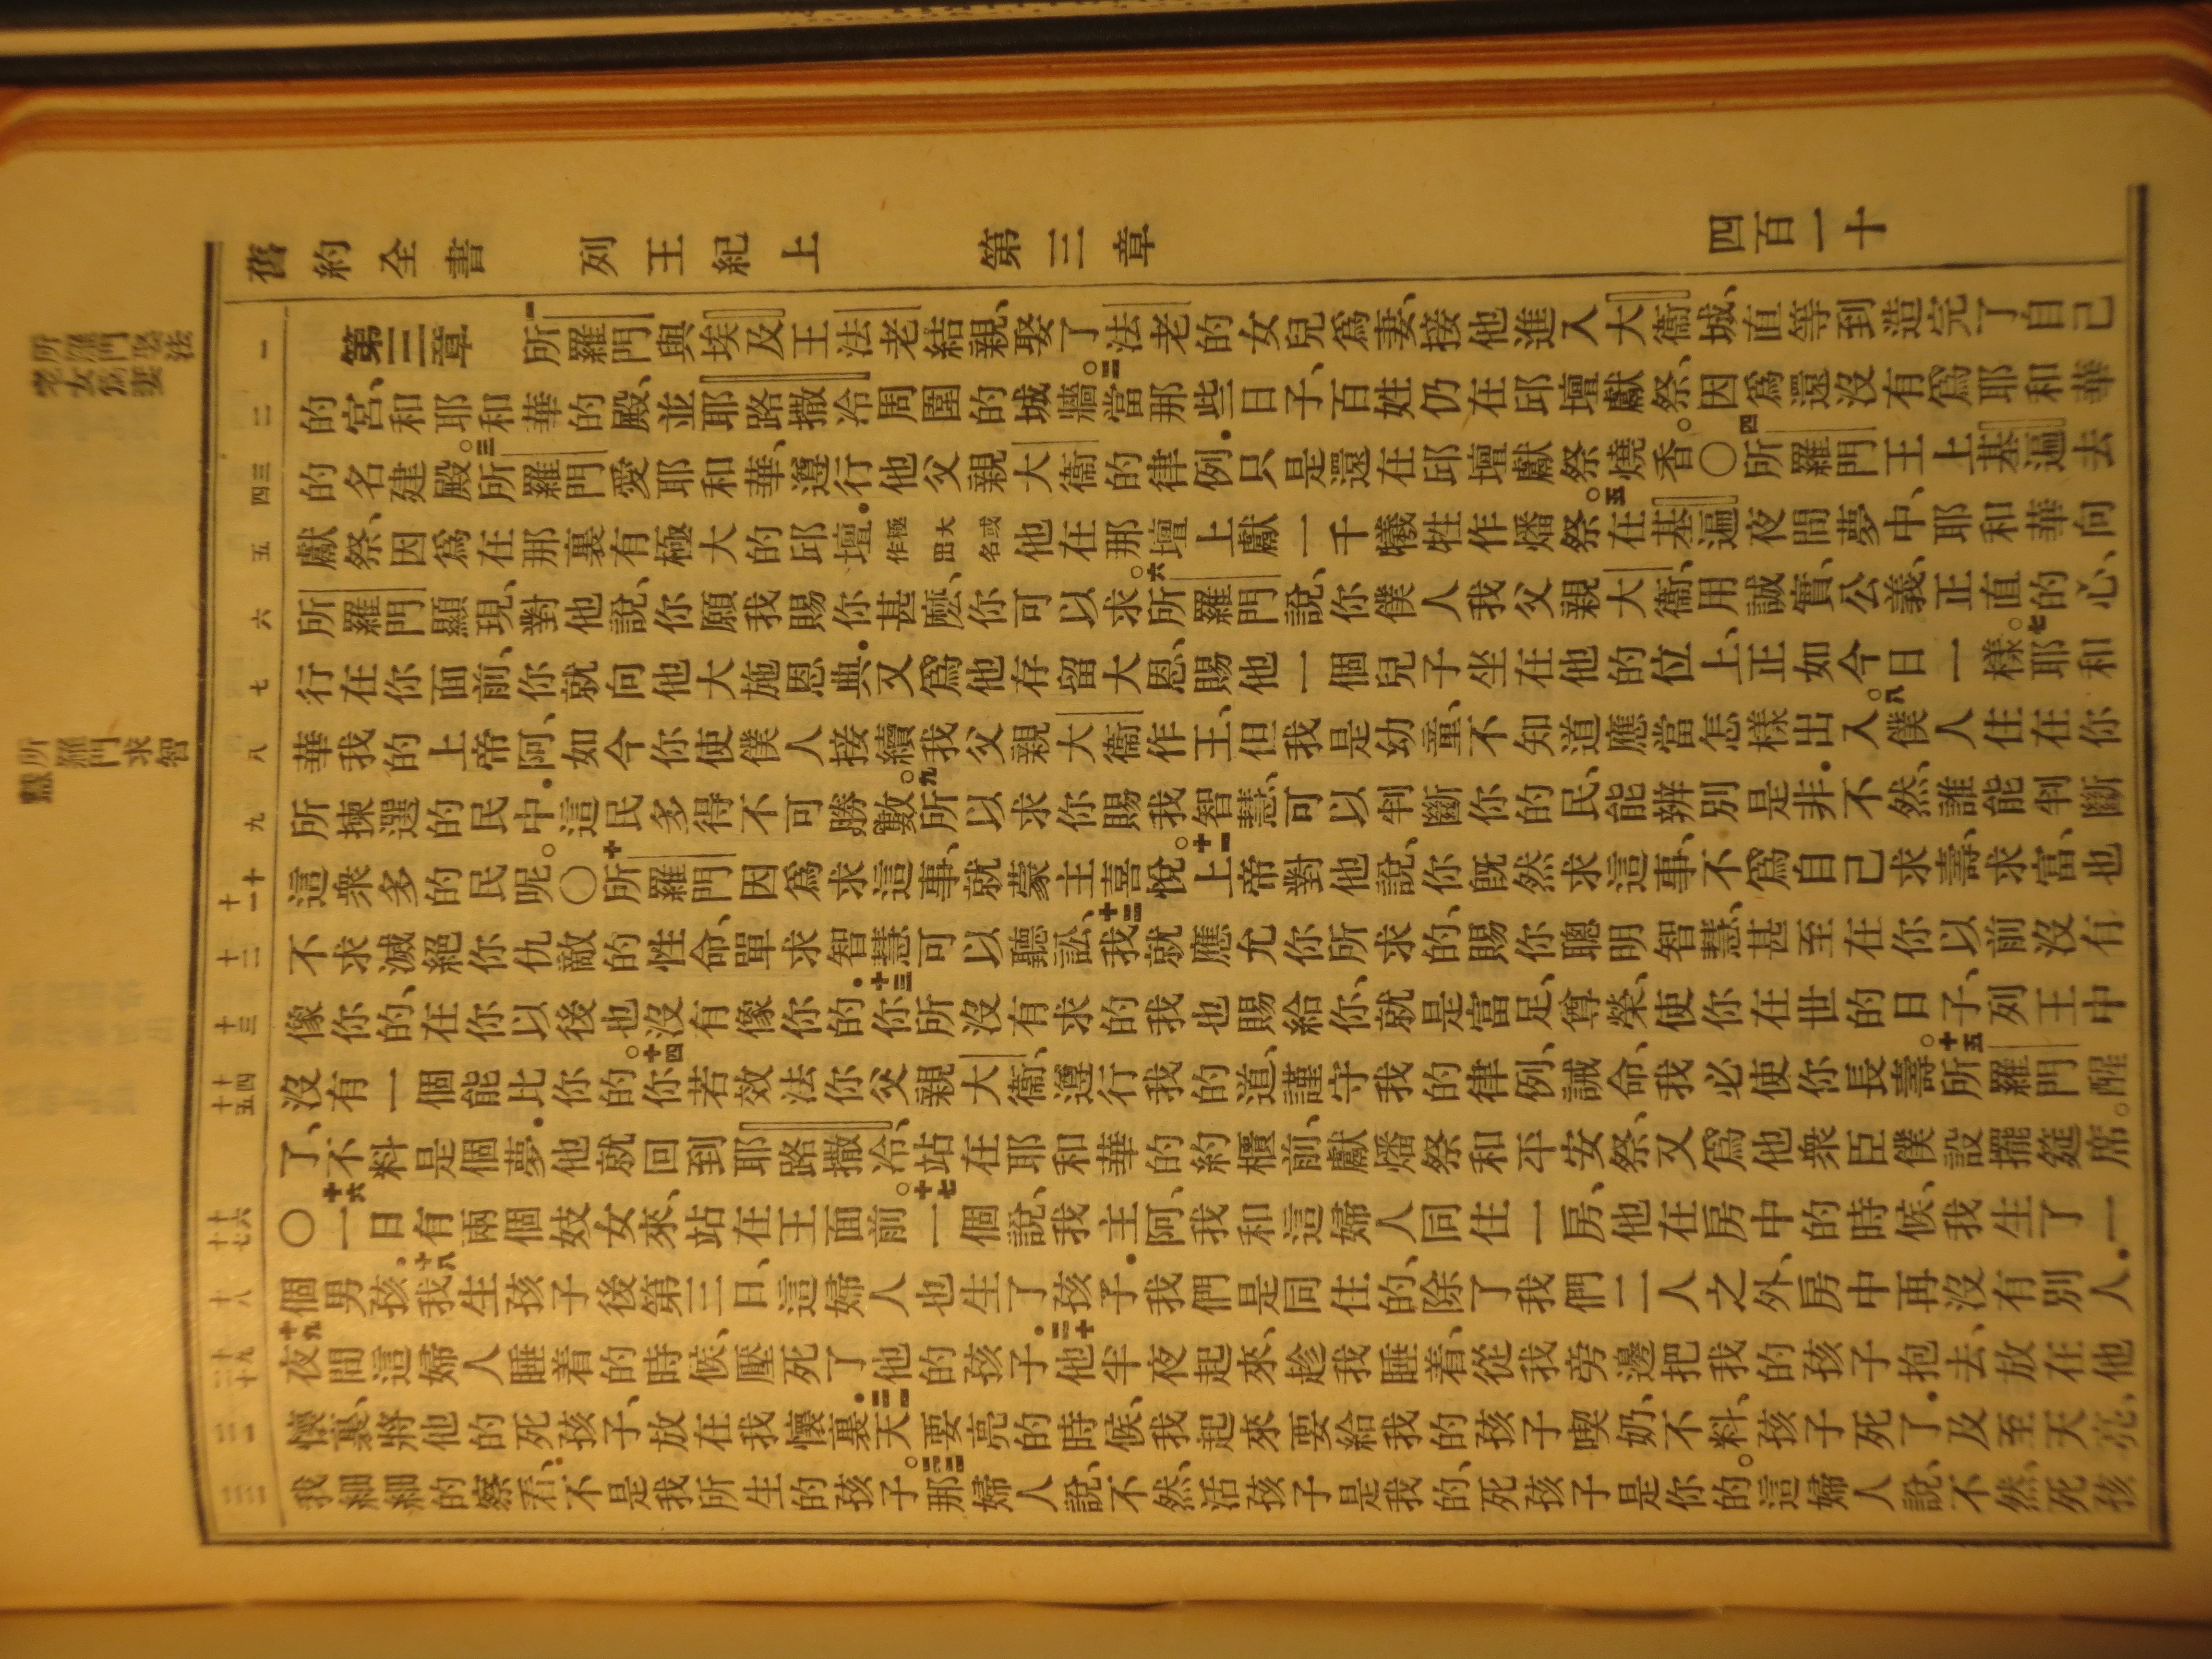 舊約全書 列王紀上 第三章 四百一十
所羅門娶法
老女爲妻
所羅門求智
慧
第三章 一所羅門與埃及王法老結親、娶了法老的女兒爲妻、接他進入大衞城、直等到造完了自己
的宮、和耶和華的殿、並耶路撒冷周圍的城牆。二當那些日子、百姓仍在邱壇獻祭、因爲還沒有爲耶和華
的名建殿。三所羅門愛耶和華、遵行他父親大衞的律例．只是還在邱壇獻祭燒香。〇四所羅門王上基遍去
獻祭、因爲在那裏有極大的邱壇．極大或作出名 他在那壇上獻一千犧牲作燔祭。五在基遍夜間夢中、耶和華向
所羅門顯現、對他說、你願我賜你甚麽、你可以求。六所羅門說、你僕人我父親大衞、用誠實、公義、正直的心、
行在你面前、你就向他大施恩典．又爲他存留大恩、賜他一個兒子坐在他的位上、正如今日一樣。七耶和
華我的上帝阿、如今你使僕人接續我父親大衞作王、但我是幼童、不知道應當怎樣出入。八僕人住在你
所揀選的民中．這民多得不可勝數。九所以求你賜我智慧、可以判斷你的民、能辨別是非．不然、誰能判斷
這衆多的民呢。〇十所羅門因爲求這事、就蒙主喜悅。十一上帝對他說、你旣然求這事、不爲自己求壽、求富、也
不求滅絕你仇敵的性命、單求智慧可以聽訟、十二我就應允你所求的、賜你聰明智慧、甚至在你以前沒有
像你的、在你以後也沒有像你的．十三你所沒有求的我也賜給你、就是富足、尊榮、使你在世的日子、列王中
沒有一個能比你的。十四你若效法你父親大衞、遵行我的道、謹守我的律例、誡命、我必使你長壽。十五所羅門醒
了、不料是個夢．他就回到耶路撒冷、站在耶和華的約櫃前、獻燔祭和平安祭、又爲他衆臣僕設擺筵席。
〇十六一日有兩個妓女來、站在王面前。十七一個說、我主阿、我和這婦人同住一房、他在房中的時候、我生了一
個男孩．十八我生孩子後第三日、這婦人也生了孩子．我們是同住的、除了我們二人之外、房中再沒有別人．
十九夜間這婦人睡着的時候、壓死了他的孩子．二十他半夜起來、趁我睡着、從我旁邊把我的孩子抱去、放在他
懷裏、將他的死孩子、放在我懷裏．二一天要亮的時候、我起來要給我的孩子喫奶、不料、孩子死了．及至天亮、
我細細的察看、不是我所生的孩子。二二那婦人說、不然、活孩子是我的、死孩子是你的。這婦人說、不然、死孩